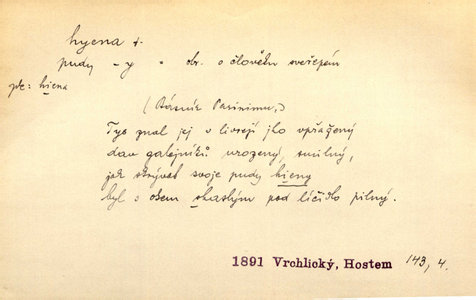 hyena f.
pudy -y = obr. o člověku sveřepém
ps: hiena
(Básník Parinimu,)
Tys znal jej v livreji jho vpřažený
dav galejníků vrozený, smilný,
jak skrýval svoje pudy hieny
byl s okem zkaslým pod líčidlo pilný.
1891 Vrchlický, Hostem 143, 4.